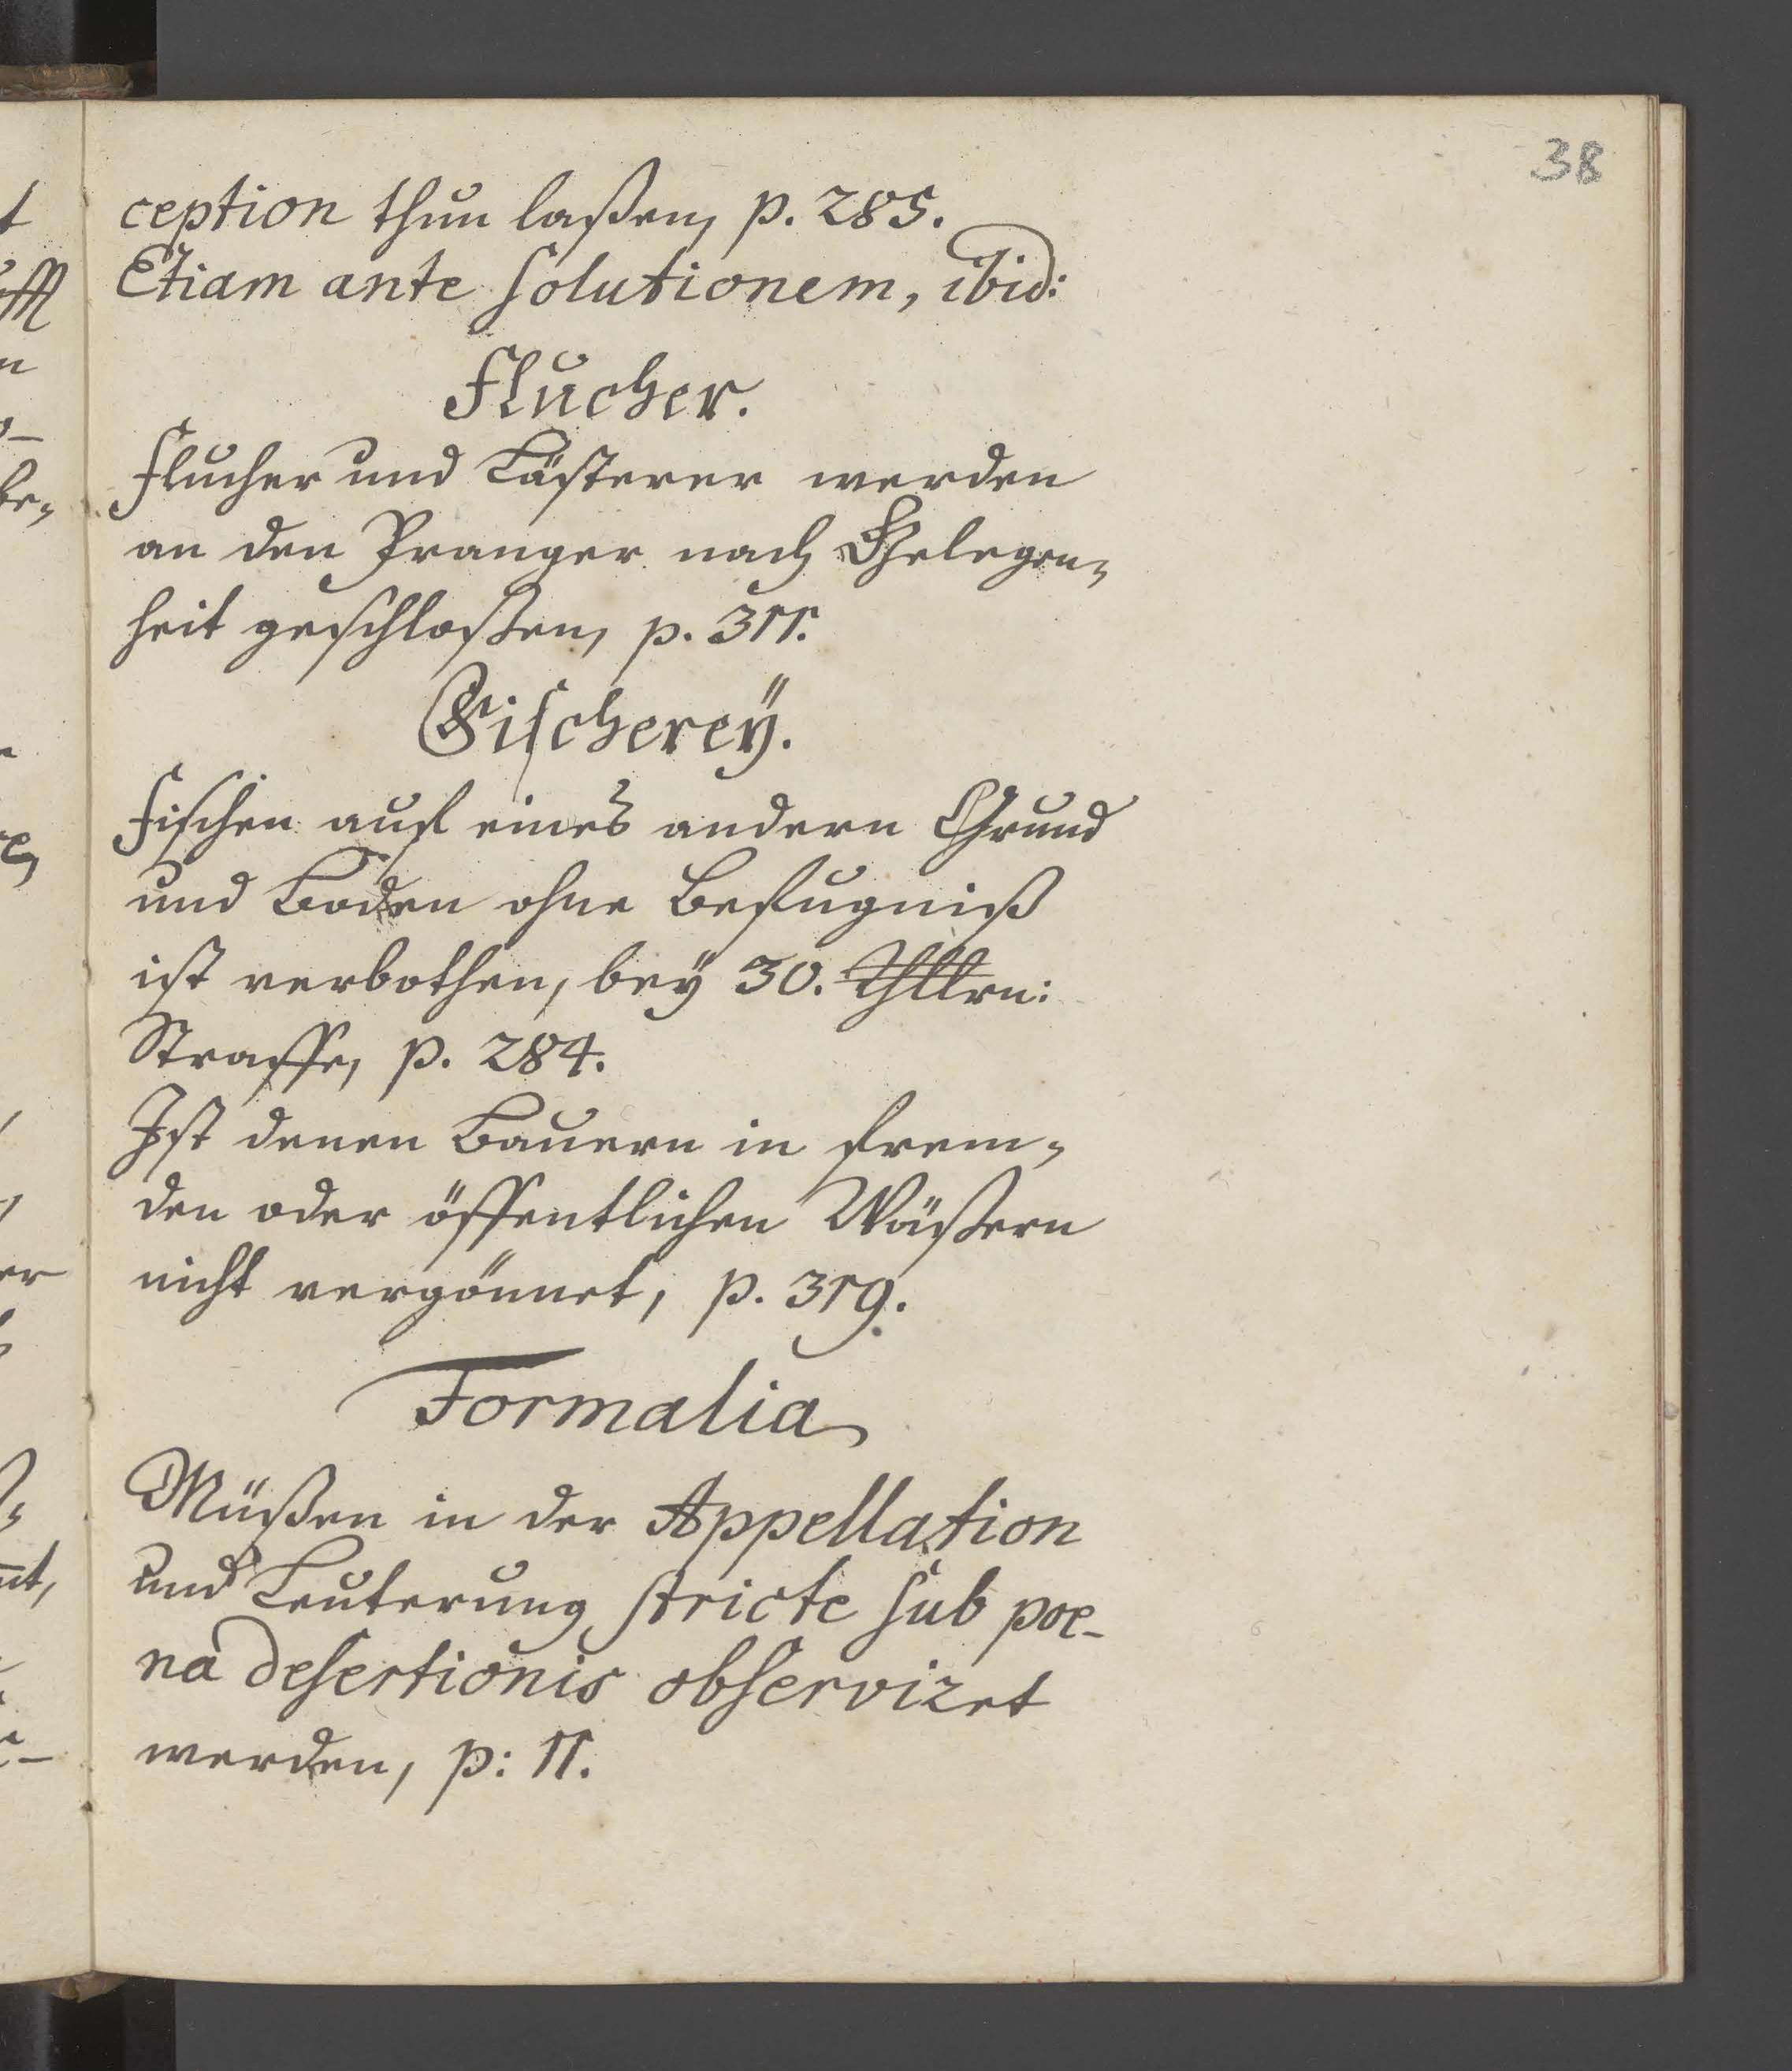 38
ception thun laßen, p. 285.
Etiam ante solutionem, ibid:
Flucher.
Flucher und Lästerer werden
an den Pranger nach Gelegen-
heit geschloßen, p. 311.
Fischerey.
Fischen auf eines andern Grund
und Boden ohne Befugniß
ist verbothen, bey 30. Thllrn:
Straffe, p. 284.
Ist denen Bauern in frem-
den oder öffentlichen Wäßern
nicht vergönnet, p. 319.
Formalia
Müßen in der Appellation
und Leuterung stricte sub poe-
na desertionis observiret
werden, p: 11.